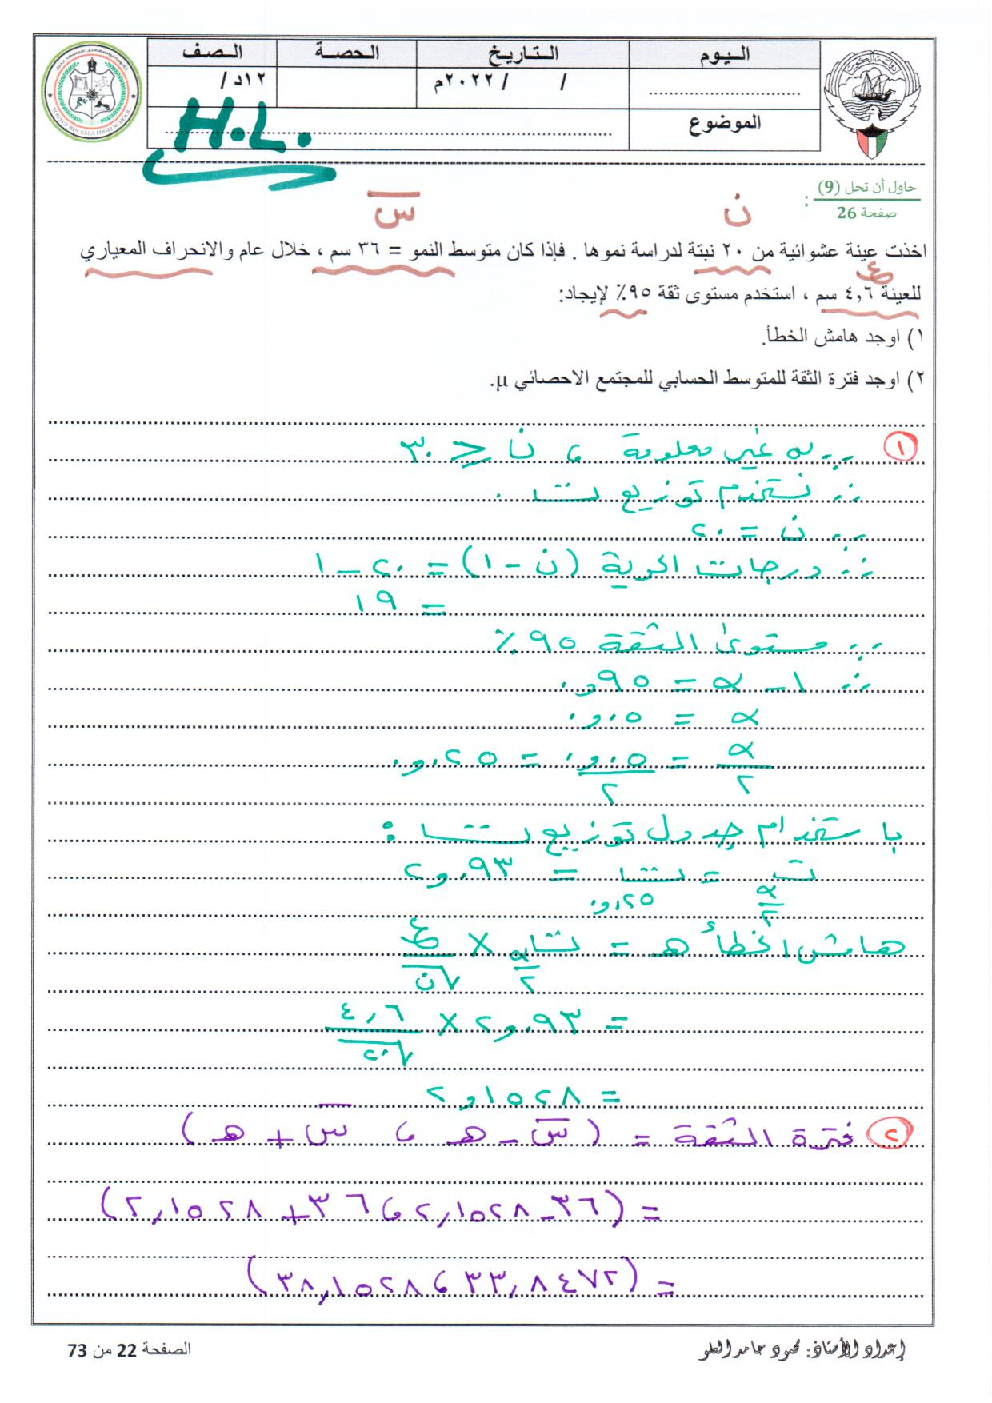 اليوم التاريخ الحصة الصف
/ / ٢٠٢٢م ١٢د /
الموضوع
H.L.
حاول أن تحل (9)
صفحة 26 :
ن س̅
اخذت عينة عشوائية من ٢٠ نبتة لدراسة نموها . فإذا كان متوسط النمو = ٣٦ سم ، خلال عام والانحراف المعياري
ع
للعينة ٤,٦ سم ، استخدم مستوى ثقة ٩٥٪ لإيجاد:
١) اوجد هامش الخطأ.
٢) اوجد فترة الثقة للمتوسط الحسابي للمجتمع الاحصائي µ.
① ∵ σ غير معلومة ، ن ≤ ٣٠
∴ نستخدم توزيع ت .
∵ ن = ٢٠
∴ درجات الحرية (ن - ١) = ٢٠ - ١
= ١٩
∵ مستوى الثقة ٩٥٪
∴ ١ - α = ٠,٩٥
α = ٠,٠٥
α/٢ = ٠,٠٥/٢ = ٠,٠٢٥
باستخدام جدول توزيع ت :
ت α/٢ = ت ٠,٠٢٥ = ٢,٠٩٣
هامش الخطأ هـ = ت α/٢ × ع/√ن
= ٢,٠٩٣ × ٤,٦/√٢٠
= ٢,١٥٢٨
② فترة الثقة = (س̅ - هـ ، س̅ + هـ)
= (٣٦ - ٢,١٥٢٨ ، ٣٦ + ٢,١٥٢٨)
= (٣٣,٨٤٧٢ ، ٣٨,١٥٢٨)
إعداد الأستاذ: محمود حامد العلو
الصفحة 22 من 73